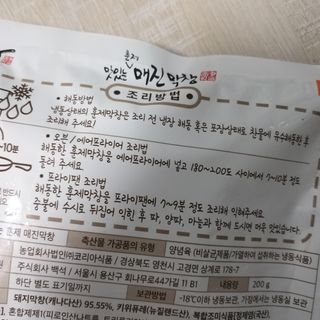 훈제
맛있는 매진막창
조리방법
• 해동방법
냉동상태의 훈제막창은 조리 전 냉장 해동 혹은 포장상태로 찬물에 유수해동한 후
조리해 주세요!
• 오븐/에어프라이어 조리법
해동한 훈제막창을 에어프라이어에 넣고 180~200도 사이에서 7~10분 정도
돌려 주세요.
• 프라이팬 조리법
해동한 훈제막창을 프라이팬에 7~9분 정도 조리해 익혀주세요.
중불에 수시로 뒤집어 익힌 후 파, 양파, 마늘과 함께 드시면 더욱 맛있습니다.
~10분
반드시
오.
훈제 매진막창 축산물 가공품의 유형 양념육 (비살균제품/가열하여 섭취하는 냉동식품)
농업회사법인㈜코리아식품 / 경상북도 영천시 고경면 상계로 178-7
주식회사 백석 / 서울시 용산구 회나무로44가길 11 B1 내용량 200 g
하단 별도 표기일까지 보관방법 -18℃이하 냉동보관, 가정에서는 냉동실 보관
돼지막창(캐나다산) 95.55%, 키위퓨레(뉴질랜드산), 복합조미식품(정제염(국산),